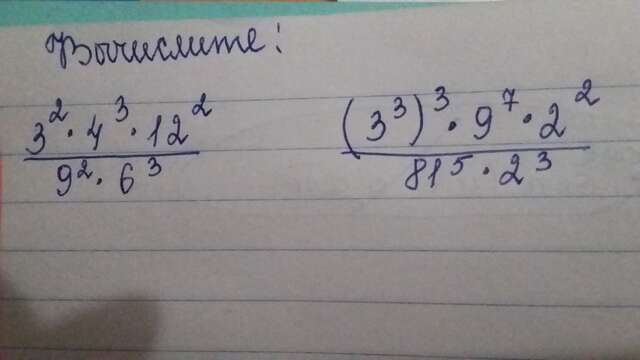 Вычислите:
3² · 4³ · 12²
9² · 6³
(3³)³ · 9⁷ · 2²
81⁵ · 2³